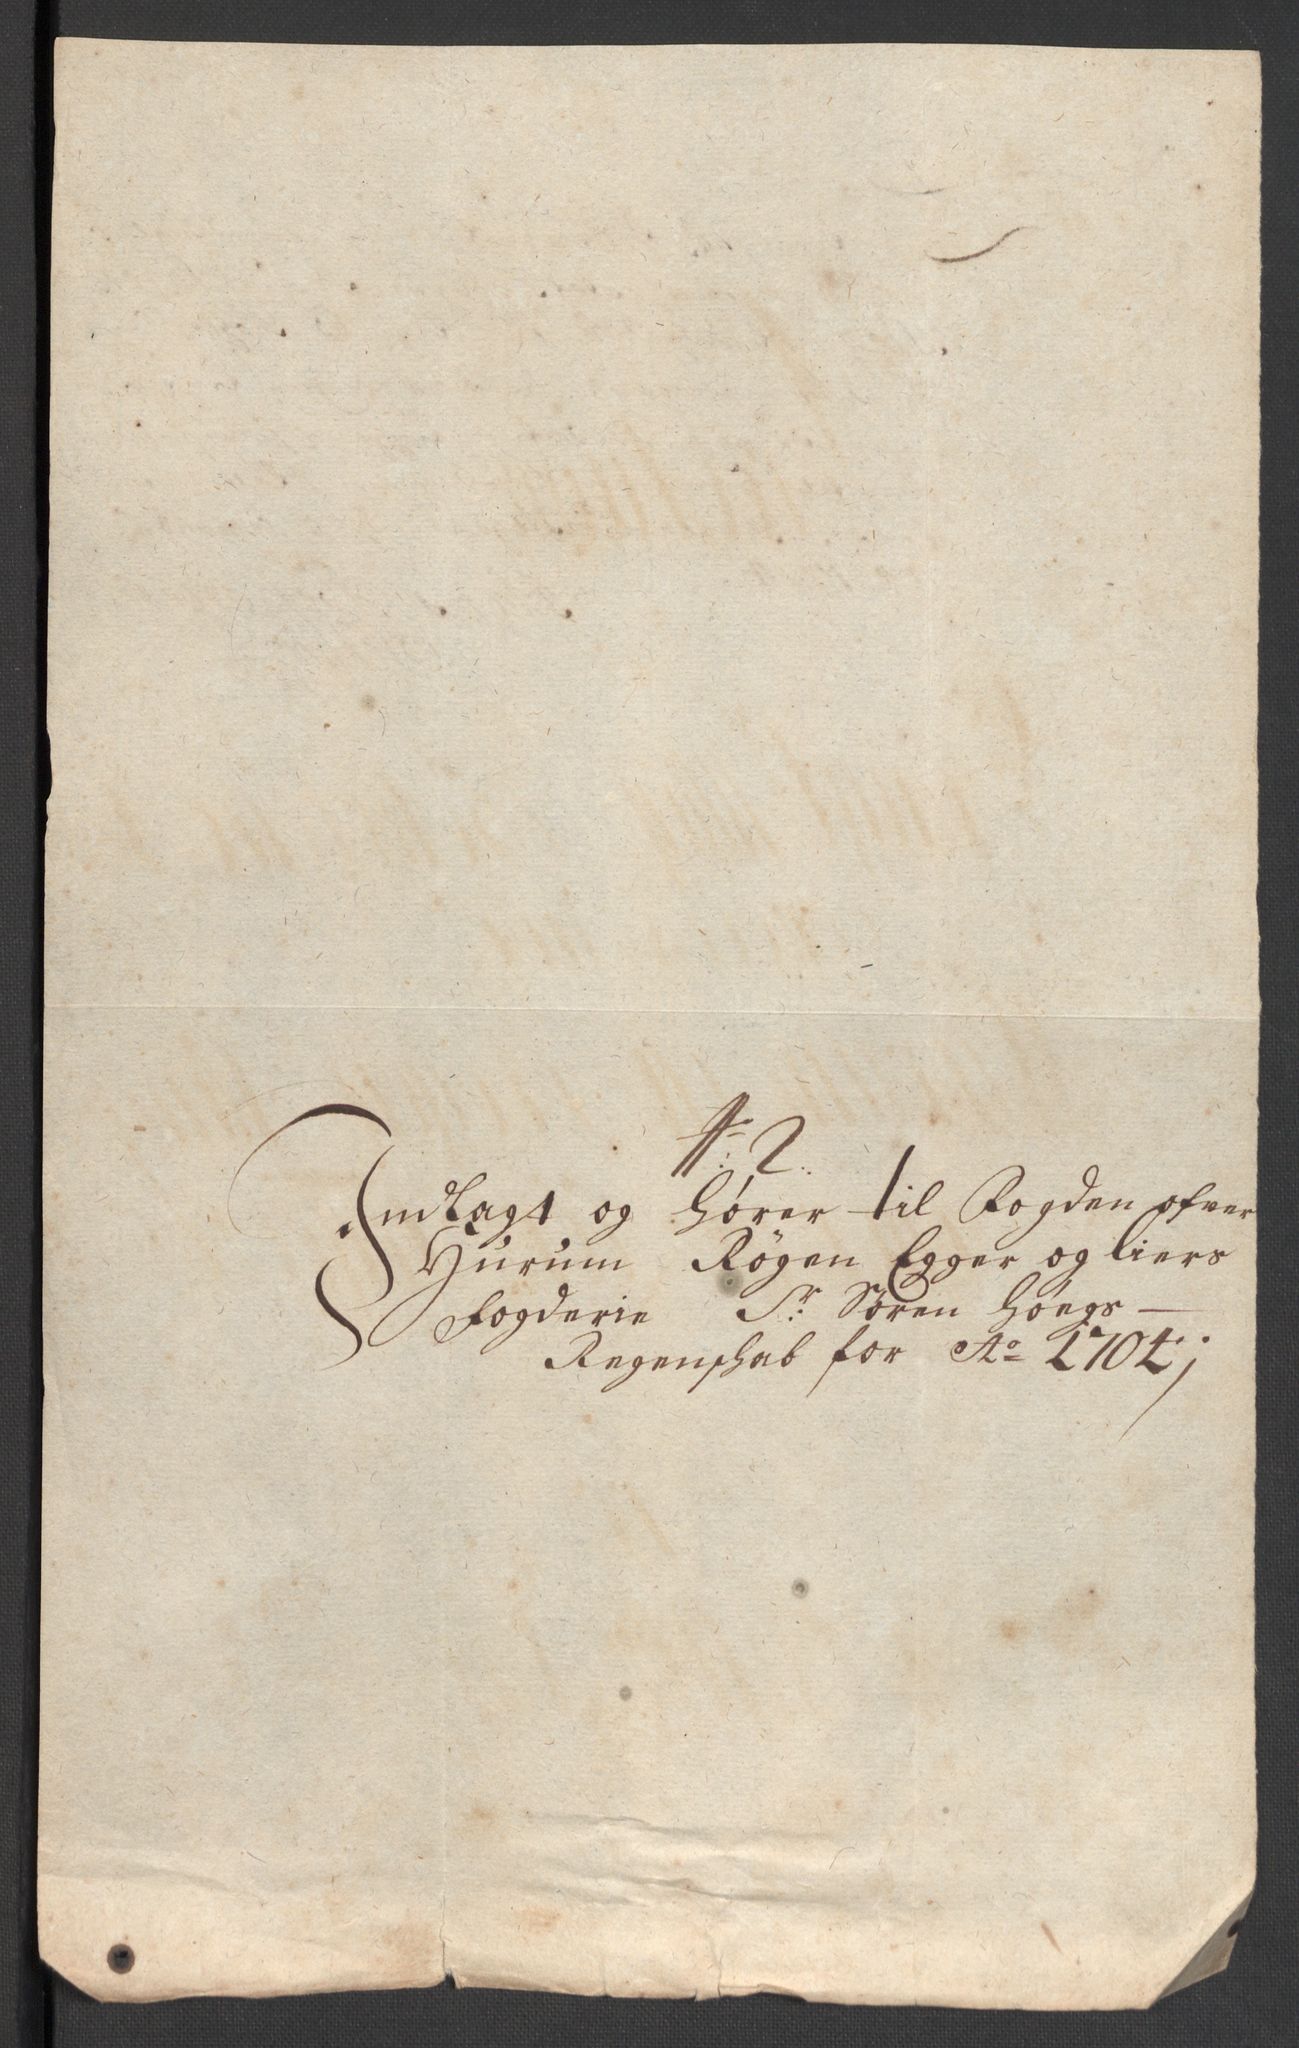 N: 2.
Indlagt og hører til Fogden ofver
Hurum Røgen Egger og liers
fogderie Sr: Søren Høegs
Regenskab for Ao 1704;